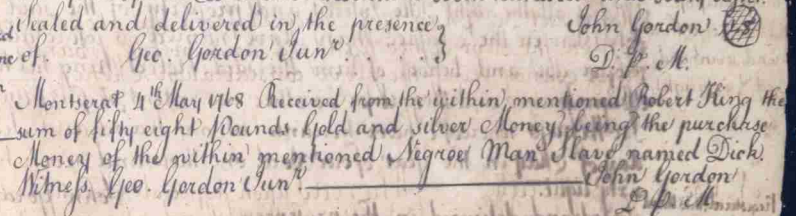 Sealed and delivered in the presence } John Gordon
of. Geo. Gordon Junr. . . . } D. P. M.
Montserat, 4th May 1768 Received from the within mentioned Robert King the
sum of fifty eight Pounds Gold and silver Money, being the purchase
Money of the within mentioned Negroe Man Slave named Dick.
Witness. Geo. Gordon Junr. John Gordon
D. P. M.